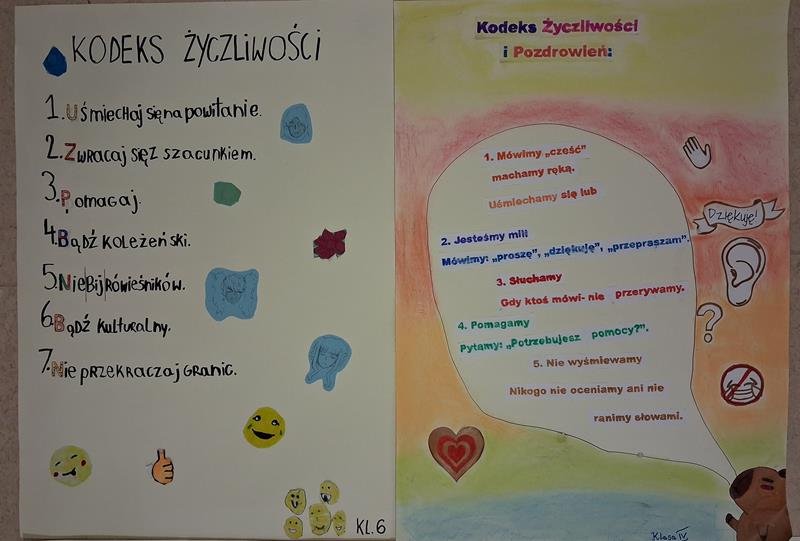 KODEKS ŻYCZLIWOŚCI
1. Uśmiechaj się na powitanie.
2. Zwracaj się z szacunkiem.
3. Pomagaj.
4. Bądź koleżeński.
5. Nie bij rówieśników.
6. Bądź kulturalny.
7. Nie przekraczaj granic.
KL. 6
Kodeks Życzliwości
i Pozdrowień:
1. Mówimy „cześć”
machamy ręką.
Uśmiechamy się lub
2. Jesteśmy mili
Mówimy: „proszę”, „dziękuję”, „przepraszam”.
3. Słuchamy
Gdy ktoś mówi- nie przerywamy.
4. Pomagamy
Pytamy: „Potrzebujesz pomocy?”.
5. Nie wyśmiewamy
Nikogo nie oceniamy ani nie
ranimy słowami.
Dziękuję!
?
Klasa IV